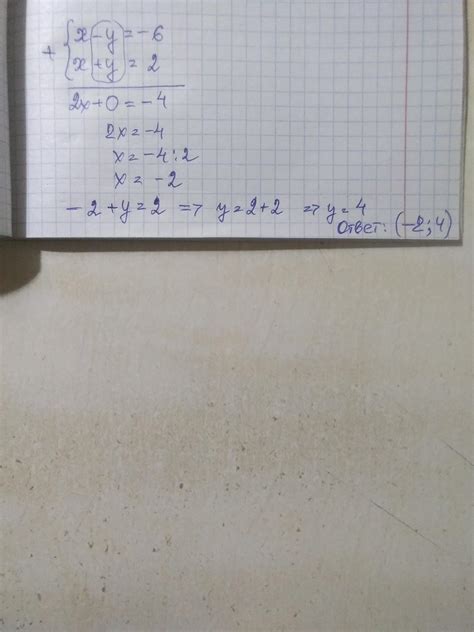 + { x - y = -6
x + y = 2
2x + 0 = -4
2x = -4
x = -4 : 2
x = -2
-2 + y = 2 => y = 2 + 2 => y = 4
Ответ: (-2; 4)